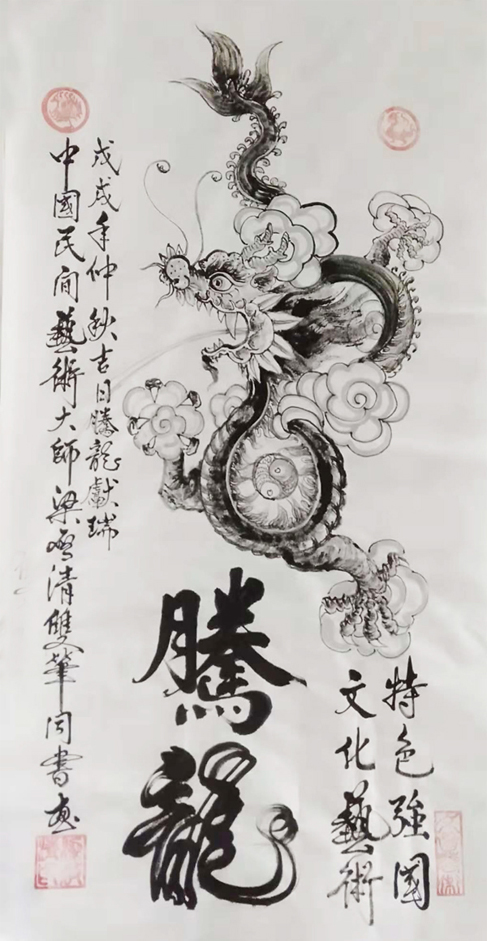 特色強國
文化藝術
騰龍
戊戌年仲秋吉日騰龍獻瑞
中國民间藝術大師梁清雙筆同書畫